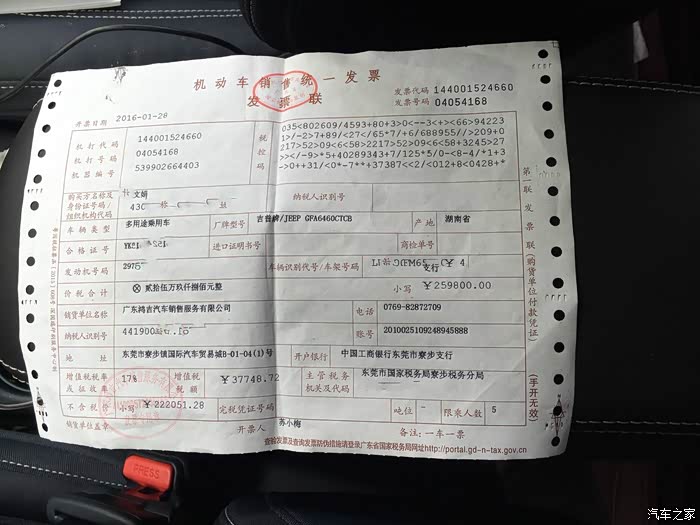 机动车销售统一发票
发票联
发票代码 144001524660
发票号码 04054168
开票日期 2016-01-28
机打代码 144001524660
机打号码 04054168
机器编号 539902664403
税控码
035<802609/4593+80+3>0<--3<+><66>94223
1>/-2>7+89/<27</65*7/+6/688955//>209+0
217>52>09<6<58>2217>52>09<6<58+3245>27
><</-9>*5+40289343+7/125*5/0-<8-4/*1+3
->0++31/<0*-7**+37387<<2/<012+8<0428+*
购买方名称及身份证号码/组织机构代码
文娟
430
纳税人识别号
车辆类型 多用途乘用车 厂牌型号 吉普牌/JEEP GFA6460CTCB 产地 湖南省
合格证号 进口证明书号 商检单号
发动机号码 2975 车辆识别代号/车架号码
支行
价税合计 ⊗贰拾伍万玖仟捌佰元整 小写 ￥259800.00
销货单位名称 广东鸿吉汽车销售服务有限公司 电话 0769-82872709
纳税人识别号 441900 账号 2010025109248945888
地址 东莞市寮步镇国际汽车贸易城B-01-04(1)号 开户银行 中国工商银行东莞市寮步支行
增值税税率或征收率 17% 增值税税额 ￥37748.72 主管税务机关及代码 东莞市国家税务局寮步税务分局
不含税价 小写 ￥222051.28 完税凭证号码 吨位 - 限乘人数 5
销货单位盖章 开票人 苏小梅 备注:一车一票
查验发票及查询发票防伪措施请登录广东省国家税务局网址http://portal.gd-n-tax.gov.cn
第一联 发票联(购货单位付款凭证)
(手开无效)
PRESS
汽车之家